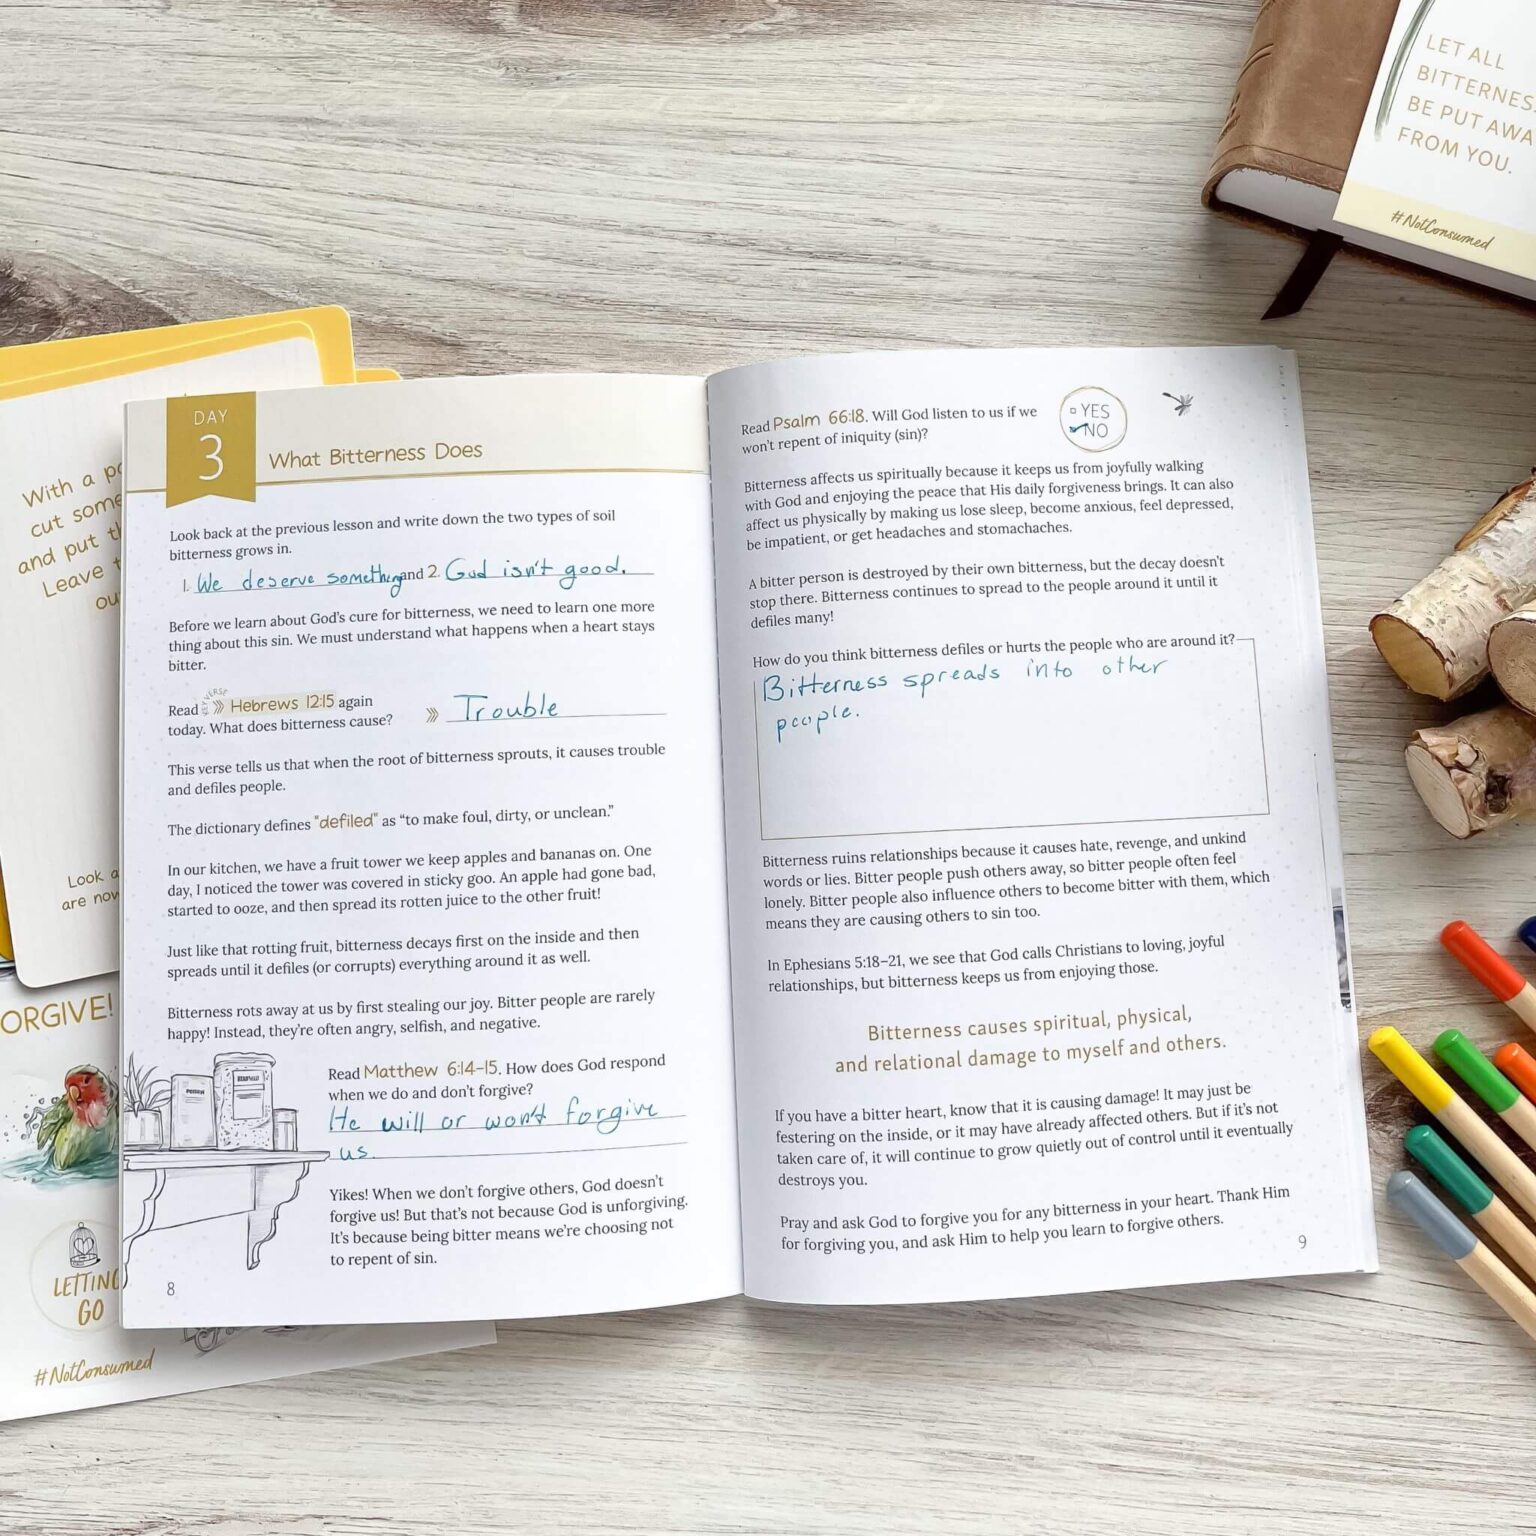 DAY
3
What Bitterness Does
Look back at the previous lesson and write down the two types of soil
bitterness grows in.
1. We deserve something and 2. God isn't good.
Before we learn about God's cure for bitterness, we need to learn one more
thing about this sin. We must understand what happens when a heart stays
bitter.
KEY VERSE
Read Hebrews 12:15 again
today. What does bitterness cause? Trouble
This verse tells us that when the root of bitterness sprouts, it causes trouble
and defiles people.
The dictionary defines "defiled" as “to make foul, dirty, or unclean.”
In our kitchen, we have a fruit tower we keep apples and bananas on. One
day, I noticed the tower was covered in sticky goo. An apple had gone bad,
started to ooze, and then spread its rotten juice to the other fruit!
Just like that rotting fruit, bitterness decays first on the inside and then
spreads until it defiles (or corrupts) everything around it as well.
Bitterness rots away at us by first stealing our joy. Bitter people are rarely
happy! Instead, they're often angry, selfish, and negative.
Read Matthew 6:14-15. How does God respond
when we do and don't forgive?
He will or won't forgive
us.
Yikes! When we don't forgive others, God doesn't
forgive us! But that's not because God is unforgiving.
It's because being bitter means we're choosing not
to repent of sin.
8
Read Psalm 66:18. Will God listen to us if we
won't repent of iniquity (sin)?
YES
NO
Bitterness affects us spiritually because it keeps us from joyfully walking
with God and enjoying the peace that His daily forgiveness brings. It can also
affect us physically by making us lose sleep, become anxious, feel depressed,
be impatient, or get headaches and stomachaches.
A bitter person is destroyed by their own bitterness, but the decay doesn't
stop there. Bitterness continues to spread to the people around it until it
defiles many!
How do you think bitterness defiles or hurts the people who are around it?
Bitterness spreads into other
people.
Bitterness ruins relationships because it causes hate, revenge, and unkind
words or lies. Bitter people push others away, so bitter people often feel
lonely. Bitter people also influence others to become bitter with them, which
means they are causing others to sin too.
In Ephesians 5:18–21, we see that God calls Christians to loving, joyful
relationships, but bitterness keeps us from enjoying those.
Bitterness causes spiritual, physical,
and relational damage to myself and others.
If you have a bitter heart, know that it is causing damage! It may just be
festering on the inside, or it may have already affected others. But if it's not
taken care of, it will continue to grow quietly out of control until it eventually
destroys you.
Pray and ask God to forgive you for any bitterness in your heart. Thank Him
for forgiving you, and ask Him to help you learn to forgive others.
9
LET ALL
BITTERNES
BE PUT AWA
FROM YOU.
#NotConsumed
With a p
cut some
and put th
Leave t
ou
Look a
are now
ORGIVE!
LETTING
GO
#NotConsumed